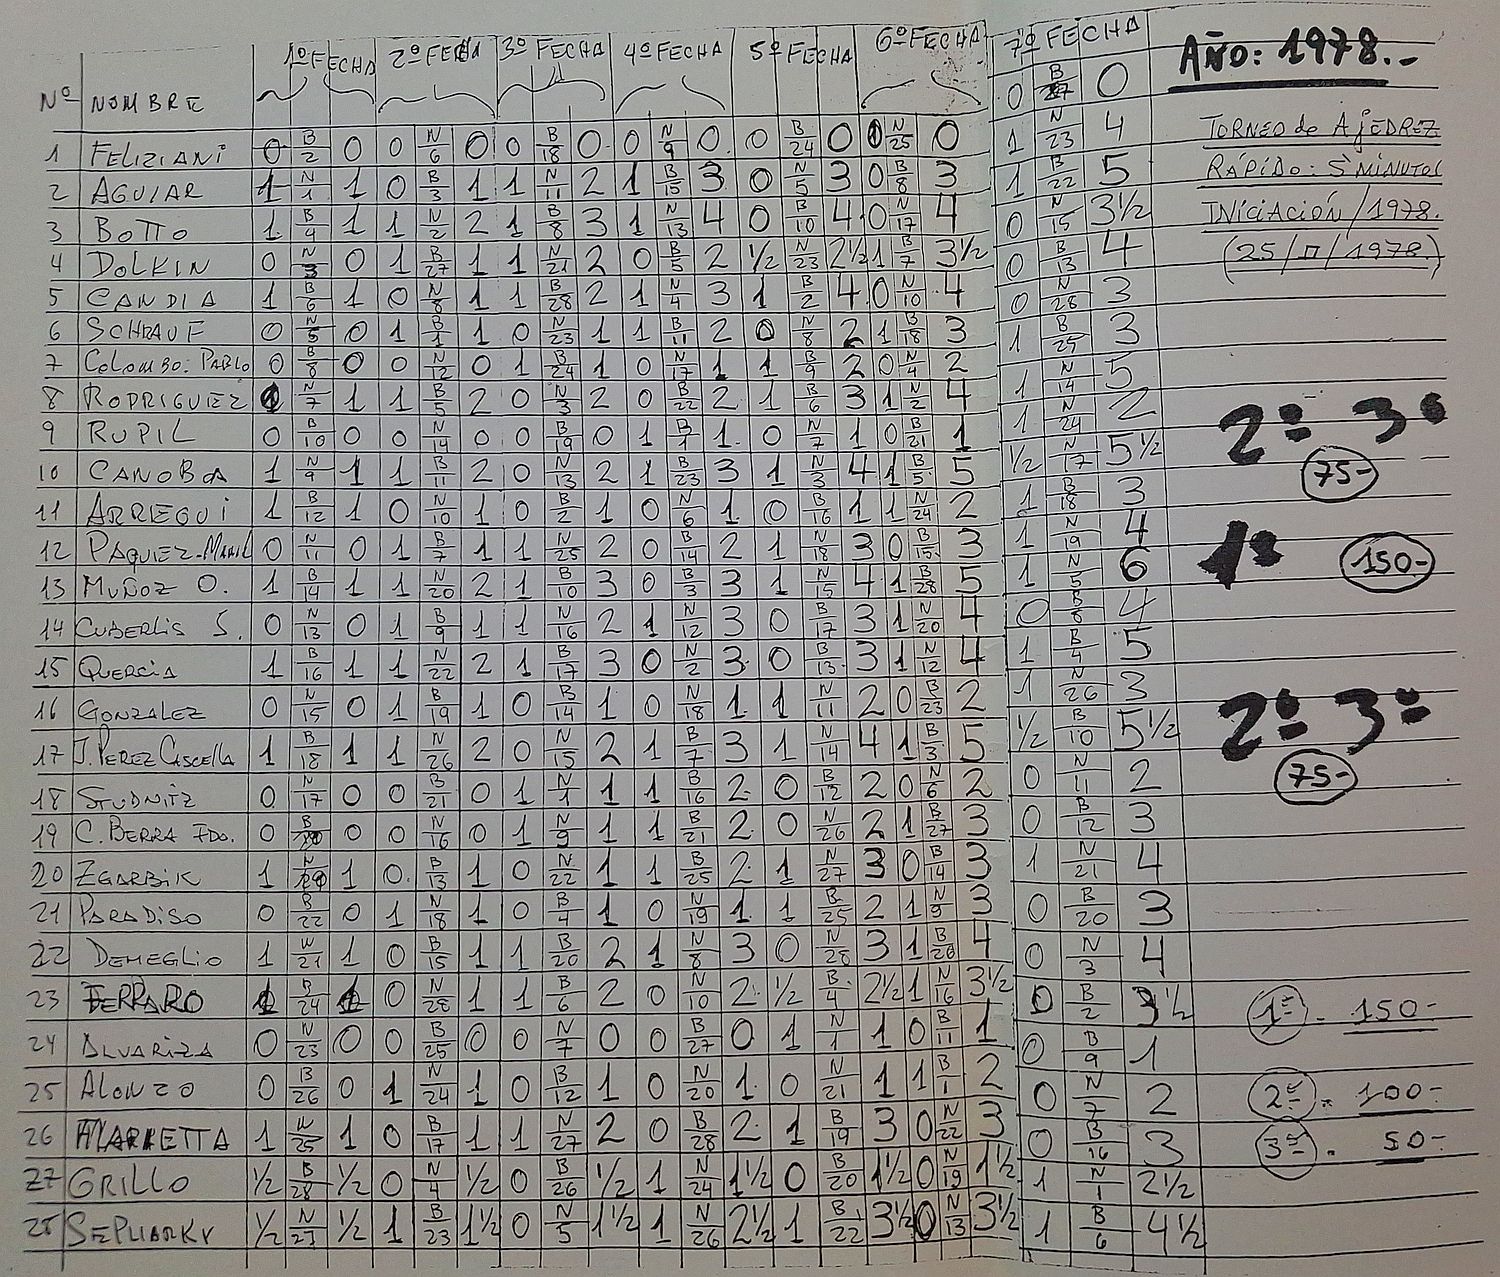 1º FECHA 2º FECHA 3º FECHA 4º FECHA 5º FECHA 6º FECHA 7º FECHA
AÑO: 1978.-
Nº NOMBRE
TORNEO de AjEDREZ
RÁPIDO: 5 MINUTOS
INICIACIÓN/1978.
(25/II/1978.)
1 FELIZIANI 0 B/2 0 0 N/6 0 0 B/18 0 0 N/9 0 0 B/24 0 0 N/25 0 0 B/27 0
2 AGUIAR 1 N/1 1 0 B/3 1 1 N/11 2 1 B/15 3 0 N/5 3 0 B/8 3 1 N/23 4
3 BOTTO 1 B/4 1 1 N/2 2 1 B/8 3 1 N/13 4 0 B/10 4 0 N/17 4 1 B/22 5
4 DOLKIN 0 N/3 0 1 B/27 1 1 N/21 2 0 B/5 2 ½ N/23 2½ 1 B/7 3½ 0 N/15 3½
5 CANDIA 1 B/6 1 0 N/8 1 1 B/28 2 1 N/4 3 1 B/2 4 0 N/10 4 0 B/13 4
6 SCHRAUF 0 N/5 0 1 B/1 1 0 N/23 1 1 B/11 2 0 N/8 2 1 B/18 3 0 N/28 3
7 COLOMBO: PABLO 0 B/8 0 0 N/12 0 1 B/24 1 0 N/17 1 1 B/9 2 0 N/4 2 1 B/25 3
8 RODRIGUEZ 1 N/7 1 1 B/5 2 0 N/3 2 0 B/22 2 1 B/6 3 1 N/2 4 1 N/14 5
9 RUPIL 0 B/10 0 0 N/14 0 0 B/19 0 1 B/1 1 0 N/7 1 0 B/21 1 1 N/24 2
10 CANOBA 1 N/9 1 1 B/11 2 0 N/13 2 1 B/23 3 1 N/3 4 1 B/5 5 ½ N/17 5½
2º 3º
75-
11 ARREGUI 1 B/12 1 0 N/10 1 0 B/2 1 0 N/6 1 0 B/16 1 1 N/24 2 1 B/18 3
12 PAQUIEZ 0 N/11 0 1 B/7 1 1 N/25 2 0 B/14 2 1 N/18 3 0 B/15 3 1 N/19 4
13 MUÑOZ O. 1 B/14 1 1 N/20 2 1 B/10 3 0 B/3 3 1 N/15 4 1 B/28 5 1 N/5 6
1º 150-
14 CUBERLIS S. 0 N/13 0 1 B/9 1 1 N/16 2 1 N/12 3 0 B/17 3 1 N/20 4 0 B/8 4
15 QUERCIA 1 B/16 1 1 N/22 2 1 B/17 3 0 N/2 3 0 B/13 3 1 N/12 4 1 B/4 5
16 GONZALEZ 0 N/15 0 1 B/19 1 0 B/14 1 0 N/18 1 1 N/11 2 0 B/23 2 1 N/26 3
17 J. PEREZ CASCELLA 1 B/18 1 1 N/26 2 0 N/15 2 1 B/7 3 1 N/14 4 1 B/3 5 ½ B/10 5½
2º 3º
75-
18 STUDNITZ 0 N/17 0 0 B/21 0 1 N/1 1 1 B/16 2 0 B/12 2 0 N/6 2 0 N/11 2
19 C. BERRA FDO. 0 B/20 0 0 N/16 0 1 N/9 1 1 B/21 2 0 N/26 2 1 B/27 3 0 B/12 3
20 ZGARBIK 1 N/19 1 0 B/13 1 0 N/22 1 1 B/25 2 1 N/27 3 0 B/14 3 1 N/21 4
21 PARADISO 0 B/22 0 1 N/18 1 0 B/4 1 0 N/19 1 1 B/25 2 1 N/9 3 0 B/20 3
22 DEMEGLIO 1 N/21 1 0 B/15 1 1 B/20 2 1 N/8 3 0 N/28 3 1 B/26 4 0 N/3 4
23 FERRARO 1 B/24 1 0 N/28 1 1 B/6 2 0 N/10 2 ½ B/4 2½ 1 N/16 3½ 0 B/2 3½
1º. 150-
24 ALVARIZA 0 N/23 0 0 B/25 0 0 N/7 0 0 B/27 0 1 N/1 1 0 B/11 1 0 B/9 1
25 ALONZO 0 B/26 0 1 N/24 1 0 B/12 1 0 N/20 1 0 N/21 1 1 B/1 2 0 N/7 2
2º. 100-
26 MARKETTA 1 N/25 1 0 B/17 1 1 N/27 2 0 B/28 2 1 B/19 3 0 N/22 3 0 B/16 3
3º. 50-
27 GRILLO ½ B/28 ½ 0 N/4 ½ 0 B/26 ½ 1 N/24 1½ 0 B/20 1½ 0 N/19 1½ 1 N/1 2½
28 SEPLIARKY ½ N/27 ½ 1 B/23 1½ 0 N/5 1½ 1 N/26 2½ 1 B/22 3½ 0 N/13 3½ 1 B/6 4½